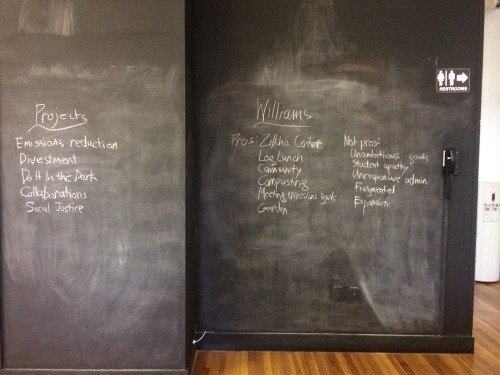 Projects
Emissions reduction
Divestment
Do It In the Dark
Collaborations
Social Justice
Williams
Pros: Zilkha Center
Log Lunch
Community
Composting
Meeting emissions goals
Garden
Not pros:
Unambitious goals
Student apathy
Unresponsive admin
Fragmented
Expansion
RESTROOMS